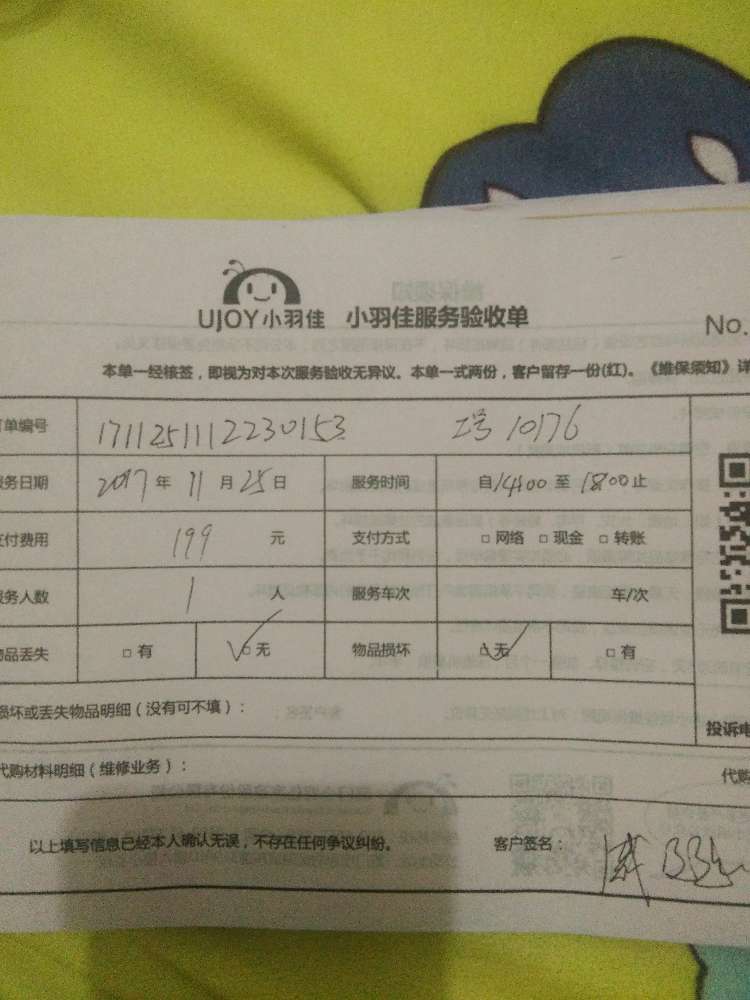 UJOY小羽佳 小羽佳服务验收单
No.
本单一经核签，即视为对本次服务验收无异议。本单一式两份，客户留存一份(红)。《维保须知》详
订单编号 1711251112230153 工号 10176
服务日期 2017 年 11 月 25 日 服务时间 自 14:00 至 18:00 止
支付费用 199 元 支付方式 □ 网络 □ 现金 □ 转账
服务人数 1 人 服务车次 车/次
物品丢失 □ 有 ☑ 无 物品损坏 ☑ 无 □ 有
损坏或丢失物品明细（没有可不填）：
投诉电
代购材料明细（维修业务）：
代购
以上填写信息已经本人确认无误，不存在任何争议纠纷。 客户签名：